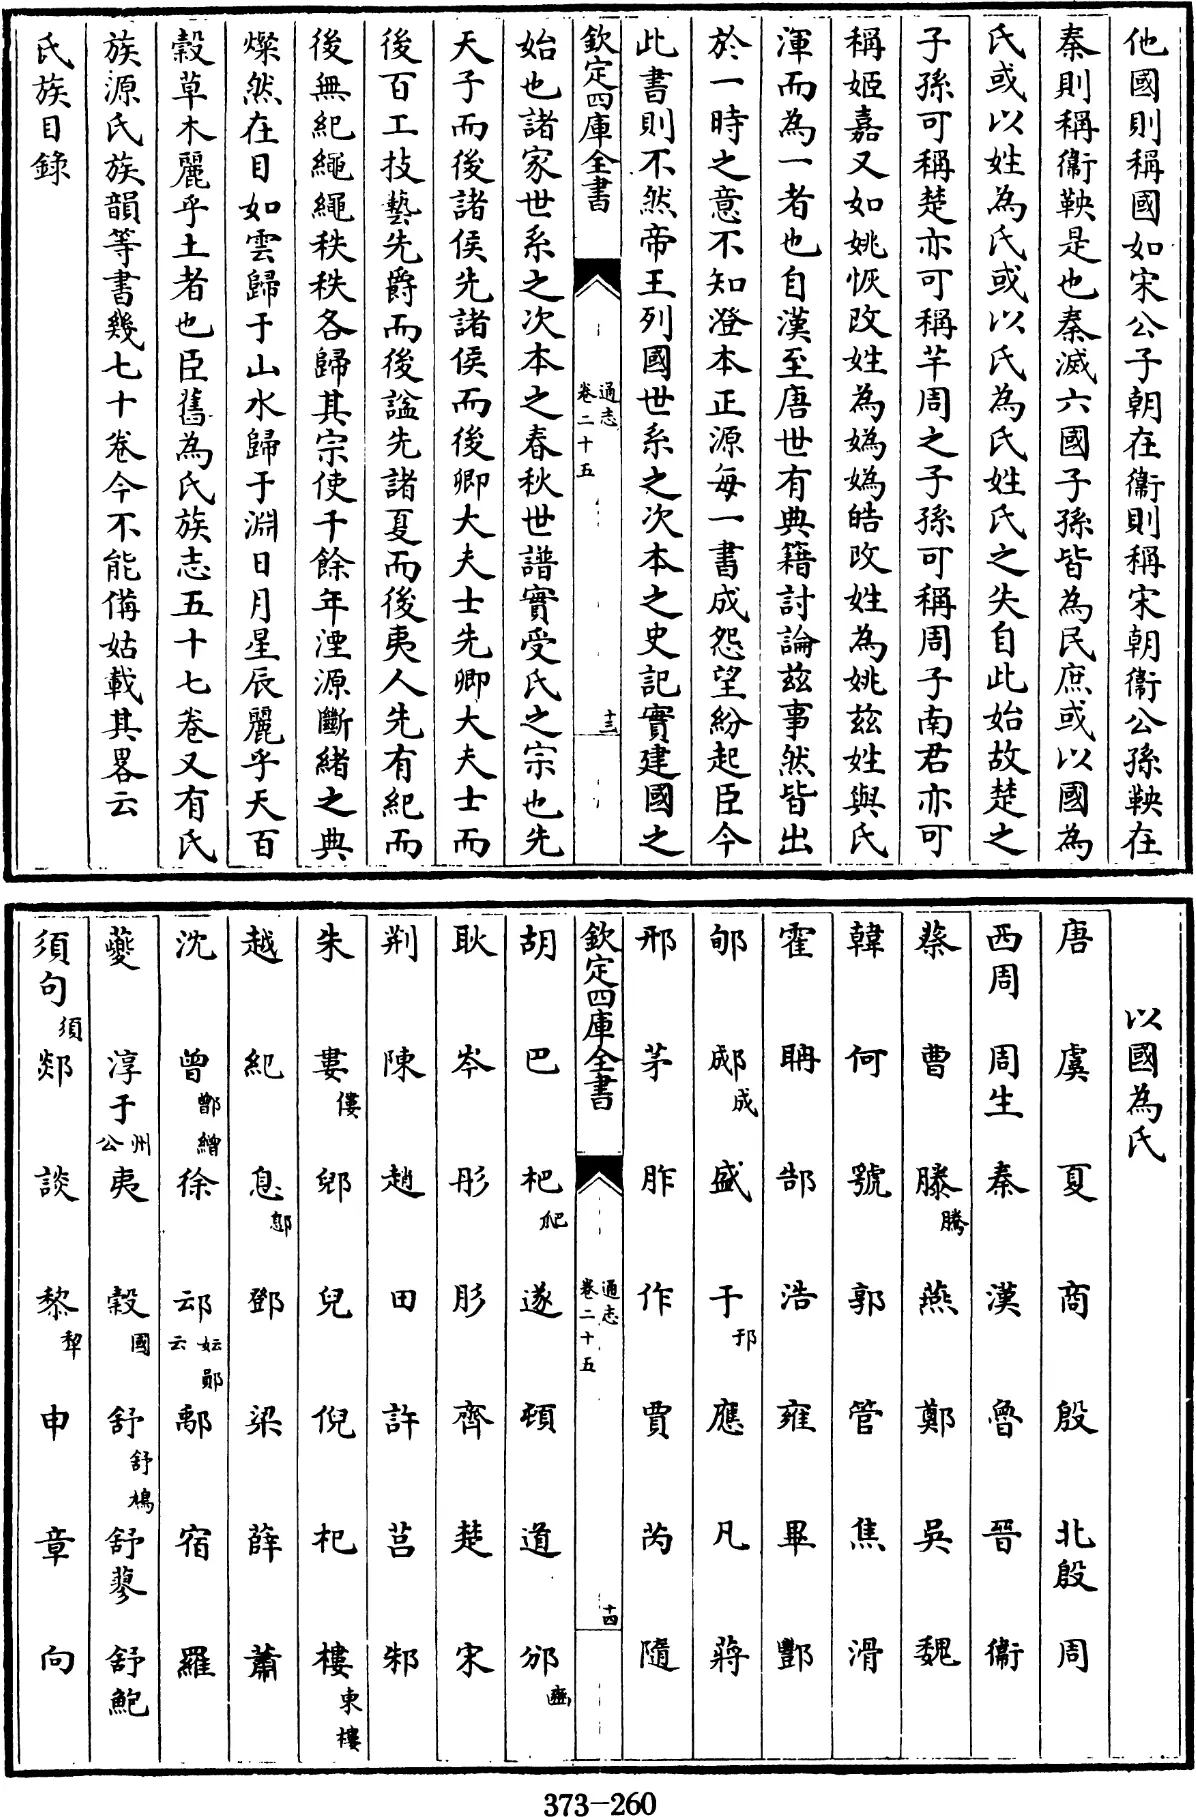 他國則稱國如宋公子朝在衞則稱宋朝衞公孫鞅在
秦則稱衞鞅是也秦滅六國子孫皆為民庶或以國為
氏或以姓為氏或以氏為氏姓氏之失自此始故楚之
子孫可稱楚亦可稱芈周之子孫可稱周子南君亦可
稱姬嘉又如姚恢改姓為媯媯皓改姓為姚茲姓與氏
渾而為一者也自漢至唐世有典籍討論茲事然皆出
於一時之意不知澄本正源每一書成怨望紛起臣今
此書則不然帝王列國世系之次本之史記實建國之
欽定四庫全書
通志
卷二十五
十三
始也諸家世系之次本之春秋世譜實受氏之宗也先
天子而後諸侯先諸侯而後卿大夫士先卿大夫士而
後百工技藝先爵而後諡先諸夏而後夷人先有紀而
後無紀繩繩秩秩各歸其宗使千餘年湮源斷緒之典
燦然在目如雲歸于山水歸于淵日月星辰麗乎天百
穀草木麗乎土者也臣舊為氏族志五十七卷又有氏
族源氏族韻等書幾七十卷今不能備姑載其畧云
氏族目錄
以國為氏
唐 虞 夏 商 殷 北殷 周
西周 周生 秦 漢 魯 晉 衞
蔡 曹 滕 騰 燕 鄭 吳 魏
韓 何 虢 郭 管 焦 滑
霍 聃 郜 浩 雍 畢 酆
郇 郕 成 盛 于 邘 應 凡 蔣
邢 茅 胙 作 賈 芮 隨
欽定四庫全書
通志
卷二十五
十四
胡 巴 杷 𤓰巴 遂 頓 道 邠 豳
耿 岑 彤 肜 齊 楚 宋
荆 陳 趙 田 許 莒 邾
朱 婁 僂 鄒 兒 倪 杞 樓 東樓
越 紀 息 鄎 鄧 梁 薛 蕭
沈 曾 鄫 繒 徐 邧 妘 云 鄖 鄅 宿 羅
夔 淳于 州公 夷 穀 國 舒 舒鳩 舒蓼 舒鮑
須句 須 郯 談 黎 犂 申 章 向
373-260